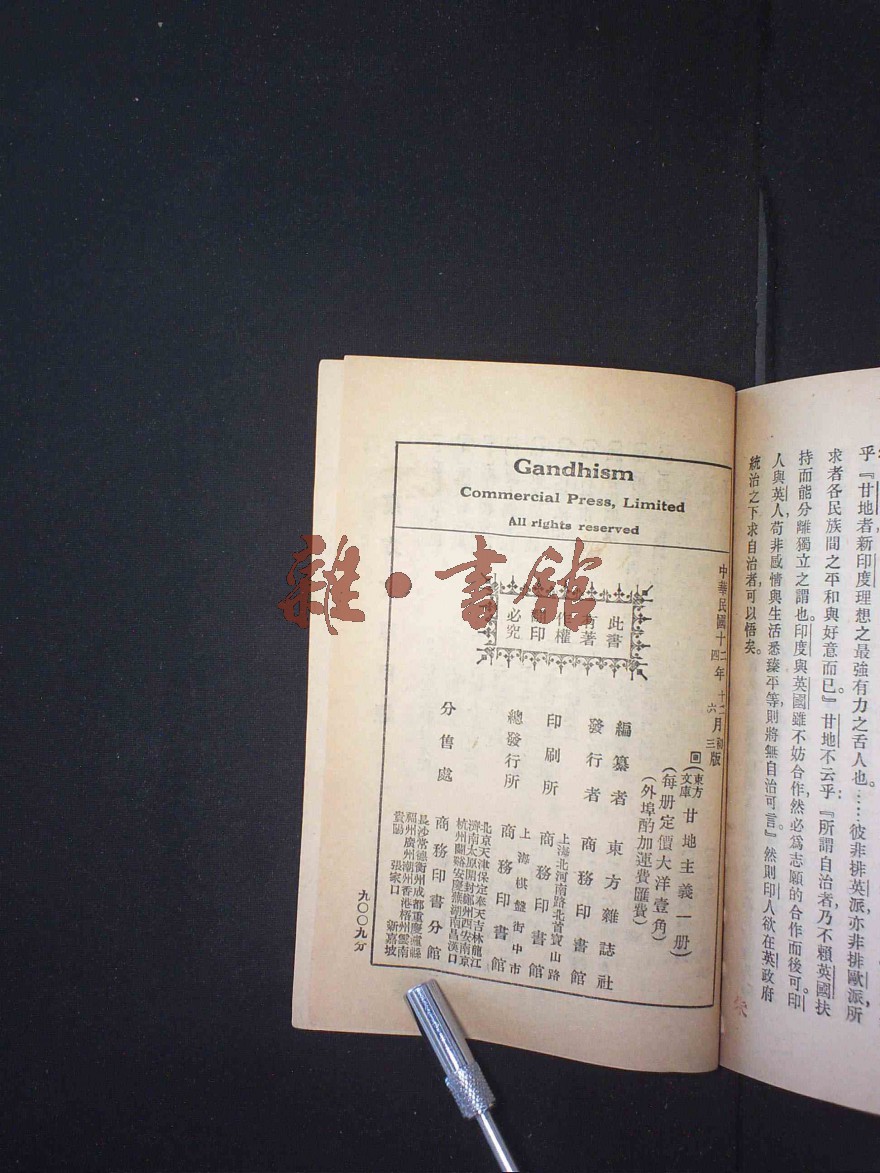 乎『甘地者新印度理想之最強有力之舌人也……彼非排英派亦非排歐派所
求者各民族間之平和與好意而已。』甘地不云乎：『所謂自治者，乃不賴英國扶
持而能分離獨立之謂也。印度與英國雖不妨合作，然必為志願的合作而後可。印
人與英人苟非感情與生活悉臻平等，則將無自治可言。』然則印人欲在英政府
統治之下求自治者，可以悟矣。
Gandhism
Commercial Press, Limited
All rights reserved
中華民國十二年十二月初版
四 六 三
(東方文庫)甘地主義一册)
(每册定價大洋壹角)
(外埠酌加運費匯費)
此書
有著
作權
翻印
必究
編纂者 東方雜誌社
發行者 商務印書館
上海北河南路北首寶山路
印刷所 商務印書館
上海棋盤街中市
總發行所 商務印書館
北京天津保定奉天吉林龍江
濟南太原開封鄭州西安南京
杭州蘭谿安慶蕪湖南昌漢口
分售處 商務印書分館
長沙常德衡州成都重慶瀘縣
福州廣州潮州香港梧州雲南
貴陽 張家口 新嘉坡
九〇〇九分
雜·書館